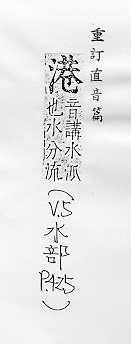 重訂直音篇
港 音講水派
也水分流
(V.5
水部
P.425)